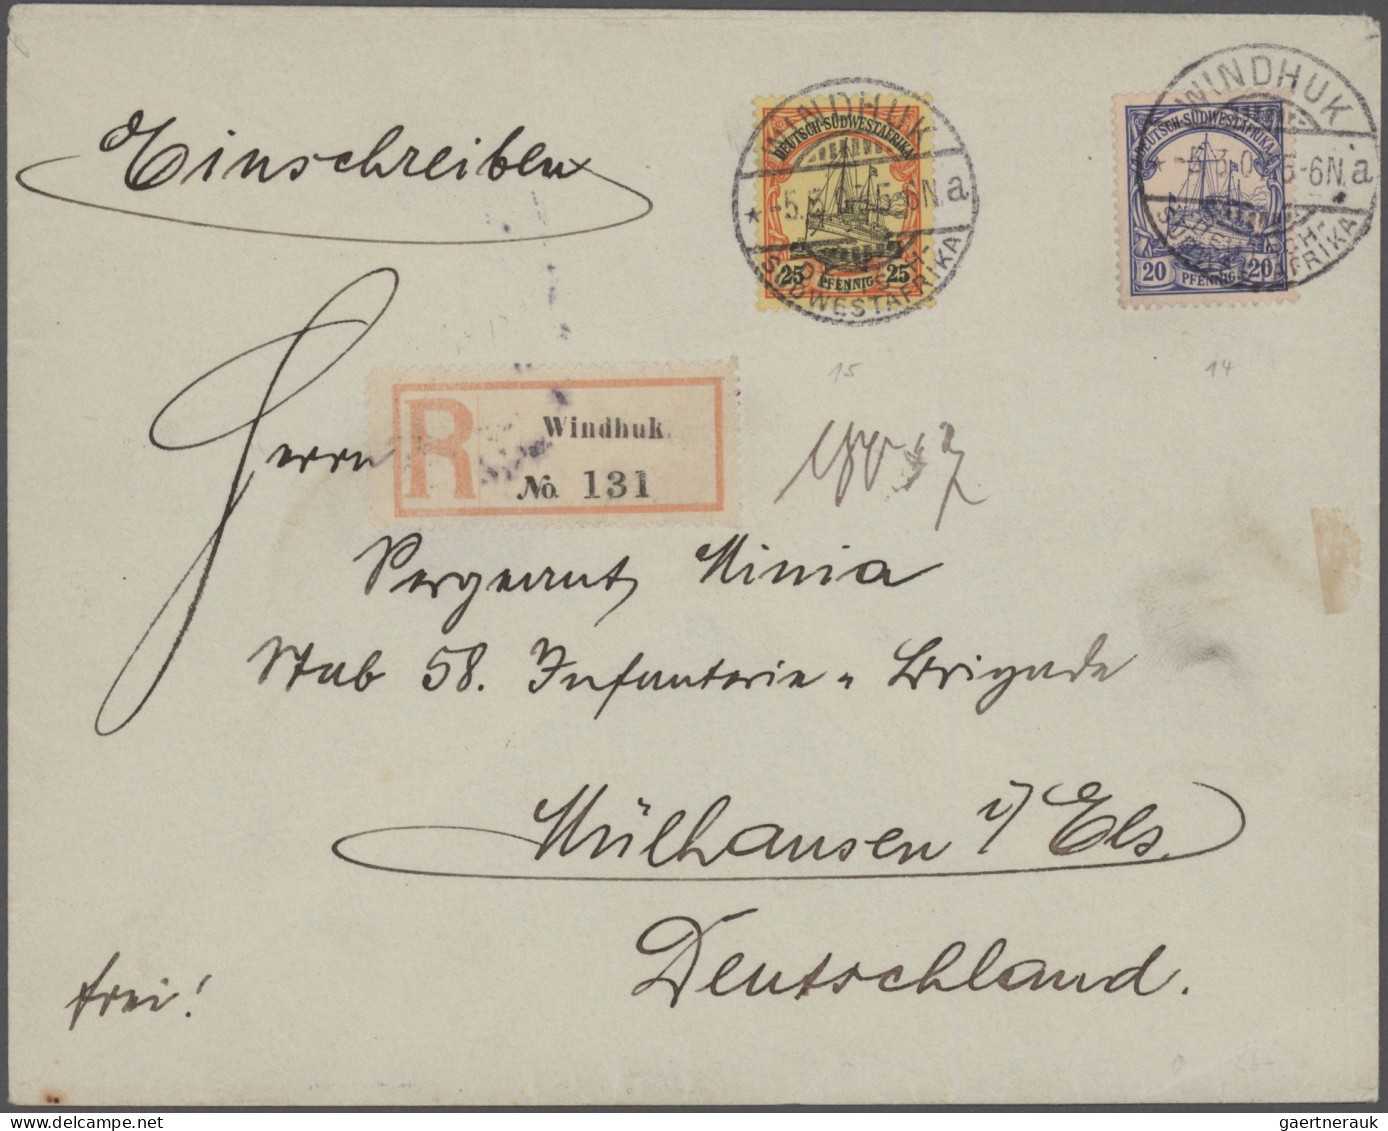 Einschreiben
WINDHUK
DEUTSCH-SÜDWESTAFRIKA
25 PFENNIG 25
DEUTSCH-
SÜDWESTAFRIKA
WINDHUK
DEUTSCH-SÜDWESTAFRIKA
-5.3.0 5-6N. a
20 PFENNIG 20
DEUTSCH-
SÜDWESTAFRIKA
15
14
R
Windhuk.
No. 131
Herrn
Sergeant Minia
Stab 58. Infanterie-Brigade
Mülhausen i/Els.
Deutschland.
frei!
gaertnerauk